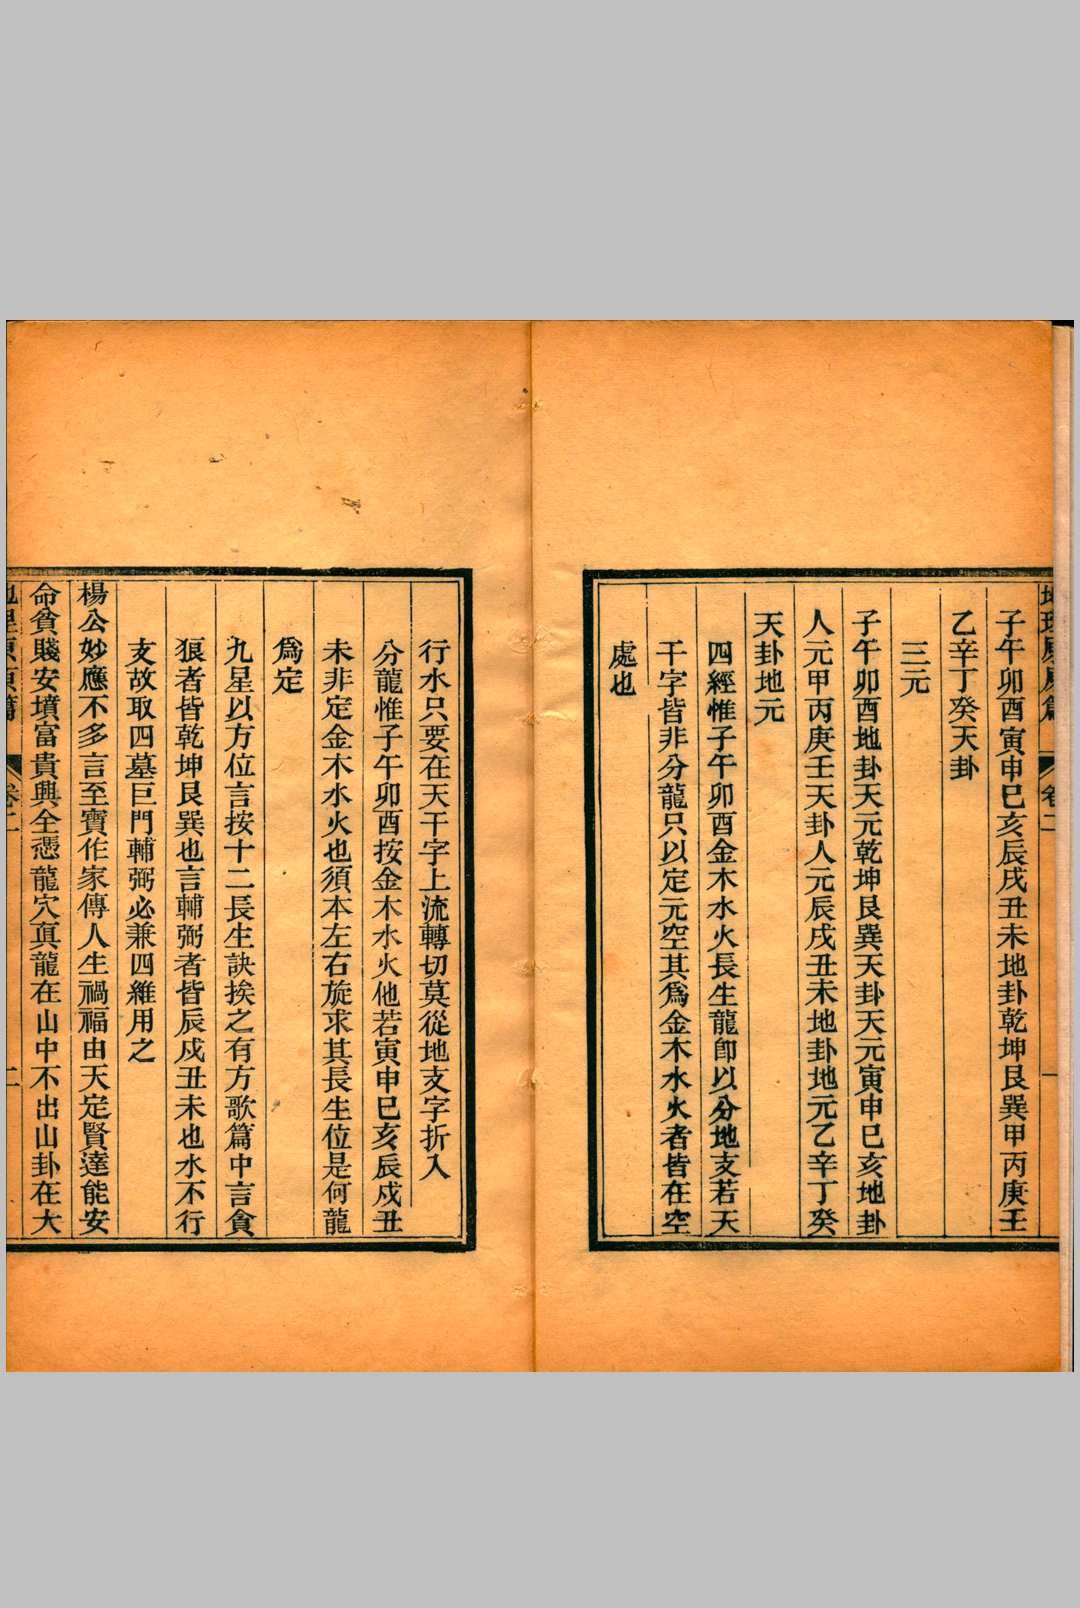 子午卯酉寅申巳亥辰戌丑未地卦乾坤艮巽甲丙庚壬
乙辛丁癸天卦
三元
子午卯酉地卦天元乾坤艮巽天卦天元寅申巳亥地卦
人元甲丙庚壬天卦人元辰戌丑未地卦地元乙辛丁癸
天卦地元
四經惟子午卯酉金木水火長生龍卽以分地支若天
干字皆非分龍只以定元空其爲金木水火者皆在空
處也
行水只要在天干字上流轉切莫從地支字折入
分龍惟子午卯酉按金木水火他若寅申巳亥辰戌丑
未非定金木水火也須本左右旋求其長生位是何龍
爲定
九星以方位言按十二長生訣挨之有方歌篇中言貪
狼者皆乾坤艮巽也言輔弼者皆辰戌丑未也水不行
支故取四墓巨門輔弼必兼四維用之
楊公妙應不多言至寶作家傳人生禍福由天定賢達能安
命貧賤安墳富貴興全憑龍穴真龍在山中不出山卦在大
卷二
二